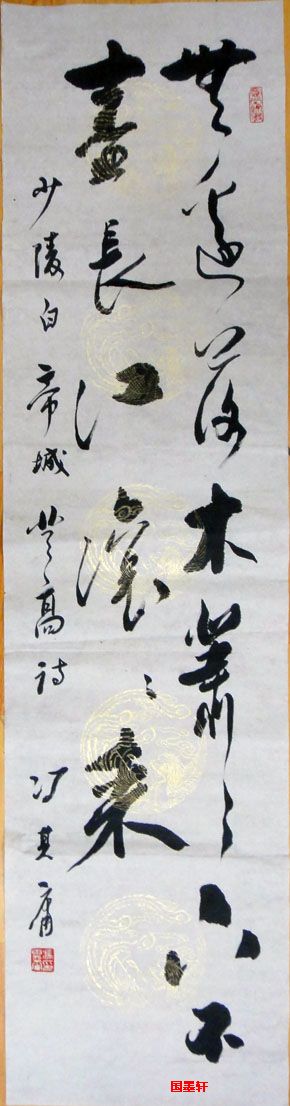 無邊落木蕭〻下不
盡長江滾〻來
少陵白帝城登高詩 馮其庸
国墨轩